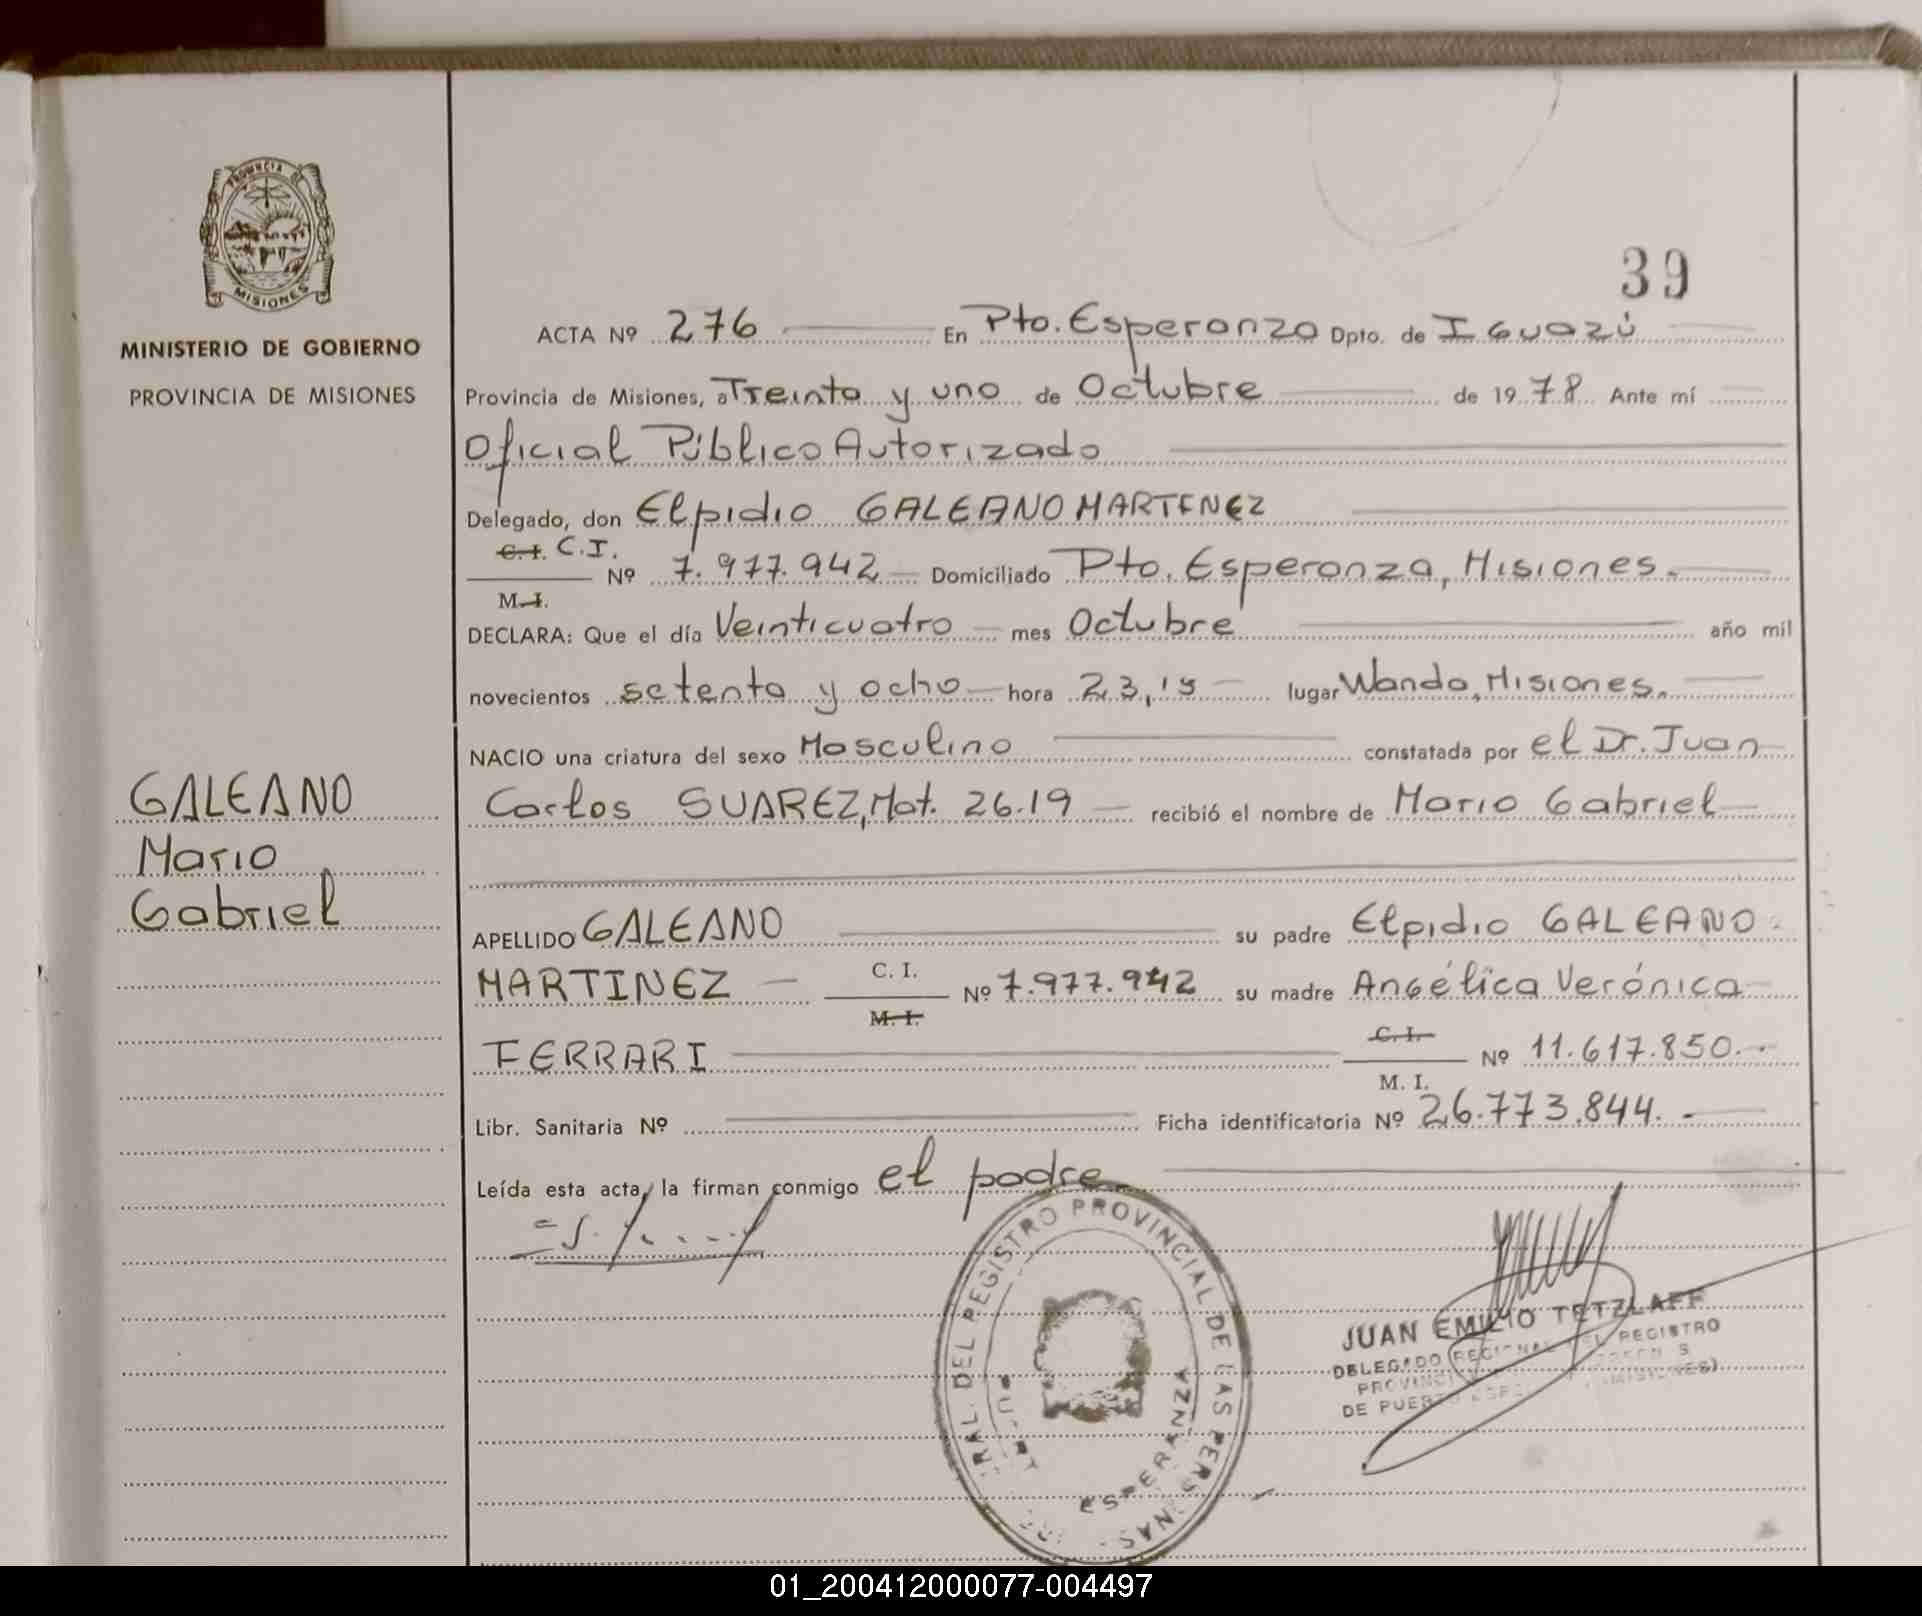 39
PROVINCIA DE
MISIONES
MINISTERIO DE GOBIERNO
PROVINCIA DE MISIONES
ACTA Nº 276 En Pto. Esperanza Dpto. de Iguazú
Provincia de Misiones, a Treinta y uno de Octubre de 1978 Ante mí
Oficial Público Autorizado
Delegado, don Elpidio GALEANO MARTINEZ
C. I. C.I.
Nº 7.977.942 Domiciliado Pto. Esperanza, Misiones.
M. I.
DECLARA: Que el día Veinticuatro mes Octubre año mil
novecientos setenta y ocho hora 23,15 lugar Wanda, Misiones.
NACIO una criatura del sexo Masculino constatada por el Dr. Juan
Carlos SUAREZ, Mat. 26.19 recibió el nombre de Mario Gabriel
GALEANO
Mario
Gabriel
APELLIDO GALEANO su padre Elpidio GALEANO
MARTINEZ C. I. M. I. Nº 7.977.942 su madre Angélica Verónica
FERRARI C. I. M. I. Nº 11.617.850.-
Libr. Sanitaria Nº Ficha identificatoria Nº 26.773.844.-
Leída esta acta, la firman conmigo el padre
DEL REGISTRO PROVINCIAL DE LAS PERSONAS
ESPERANZA
JUAN EMILIO TETZLAFF
DELEGADO REGIONAL DEL REGISTRO
DE PUERTO (MISIONES)
01_200412000077-004497